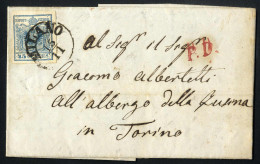 MILANO
45
P.D.
al Sigr il Sigr
Giacomo Albertetti
all'albergo della Buona
in Torino